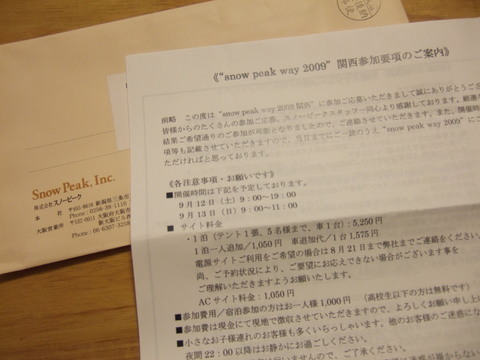 《“snow peak way 2009” 関西参加要項のご案内》
前略 この度は“snow peak way 2009 関西”に参加ご応募いただきまして誠にありがとうござ
皆様からのたくさんの参加ご応募、スノーピークスタッフ一同心より感謝しております。厳選
結果ご希望通りのご参加が可能となりましたので、ご連絡させていただきます。また、開催
項等も記載させていただきますので、当日までにご一読のうえ“snow peak way 2009”に
ただければと思っております。
《各注意事項・お願いです》
■開催時間は下記を予定しております。
9月12日(土)9:00~19:00
9月13日(日)9:00~11:00
■ サイト料金
・1泊(テント1張、5名様まで、車1台):5,250円
1泊一人追加/1,050円 車追加代/1台1,575円
電源サイトご利用をご希望の場合は8月21日まで弊社までご連絡をください。
尚、ご予約状況により、ご要望にお応えできない場合がございます事を
ご理解いただきますようお願いたします。
ACサイト料金:1,050円
■参加費用/宿泊参加の方はお一人様1,000円 (高校生以下の方は無料です)
■参加費は現金にて現地で徴収させていただきますので、よろしくお願い申し上
■小さなお子様連れのお客様も多くいらっしゃいます。他のお客様のご迷惑にな
夜間22:00以降はお静かにお過ごしください。
Snow Peak, Inc.
株式会社スノーピーク
本 社
大阪営業所